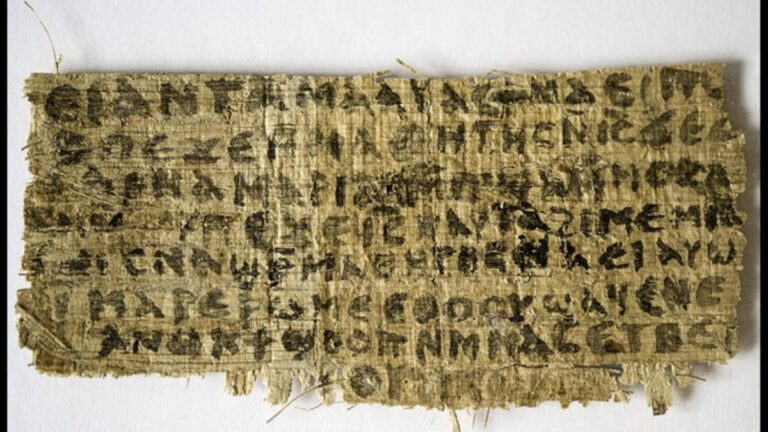 ⲉⲓ ⲁⲛ ⲧⲁⲙⲁⲁⲩ ⲁⲥϯ ⲛⲁⲉⲓ ⲡ
ⲡⲉϫⲉ ⲙⲙⲁⲑⲏⲧⲏⲥ ⲛⲓ̅ⲥ̅ ϫⲉ ⲥ
ⲁⲣⲛⲁ ⲙⲁⲣⲓⲁⲙ ⲙⲡϣⲁ ⲙⲙⲟⲥ ⲁ
ⲡⲉϫⲉ ⲓ̅ⲥ̅ ⲛⲁⲩ ⲧⲁϩⲓⲙⲉ ⲙⲛ
ⲥⲛⲁϣⲣⲙⲁⲑⲏⲧⲏⲥ ⲛⲁⲉⲓ ⲁⲩⲱ
ⲙⲁⲣⲉⲣⲱⲙⲉ ⲉⲑⲟⲟⲩ ϣⲁϥⲉ ⲛⲉ
ⲁⲛⲟⲕ ϯϣⲟⲟⲡ ⲛⲙⲙⲁⲥ ⲉⲧⲃⲉ